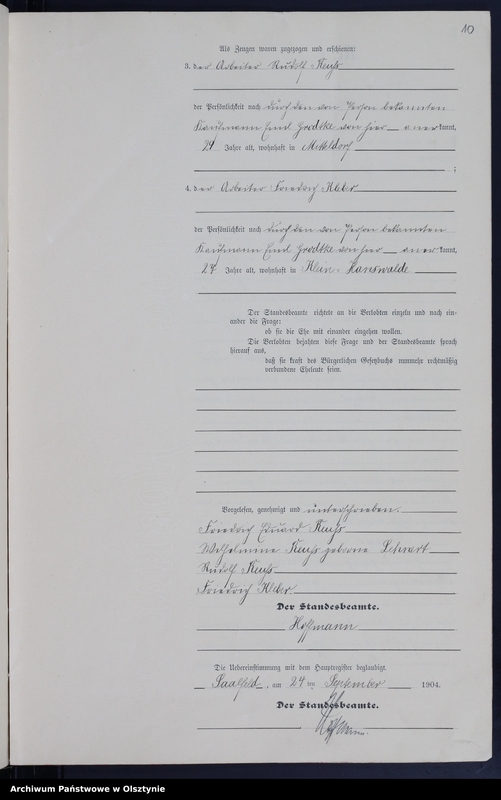 10
Als Zeugen waren zugezogen und erschienen:
3. der Arbeiter Rudolf Keuß
der Persönlichkeit nach durch den von Person bekannten
Kaufmann Emil Grodtke von hier — aner kannt,
24 Jahre alt, wohnhaft in Mitteldorf
;
4. der Arbeiter Friedrich Kleber
der Persönlichkeit nach durch den von Person bekannten
Kaufmann Emil Grodtke von hier — aner kannt,
24 Jahre alt, wohnhaft in Klein-Hanswalde
Der Standesbeamte richtete an die Verlobten einzeln und nach ein-
ander die Frage:
ob sie die Ehe mit einander eingehen wollen.
Die Verlobten bejahten diese Frage und der Standesbeamte sprach
hierauf aus,
daß sie kraft des Bürgerlichen Gesetzbuchs nunmehr rechtmäßig
verbundene Eheleute seien.
Vorgelesen, genehmigt und unterschrieben.
Friedrich Eduard Keuß
Wilhelmine Keuß geborene
Rudolf Keuß
Friedrich Kleber.
Der Standesbeamte.
Hoffmann
Die Uebereinstimmung mit dem Hauptregister beglaubigt.
Saalfeld, am 24 ten September 1904.
Der Standesbeamte.
Hoffmann.
Archiwum Państwowe w Olsztynie